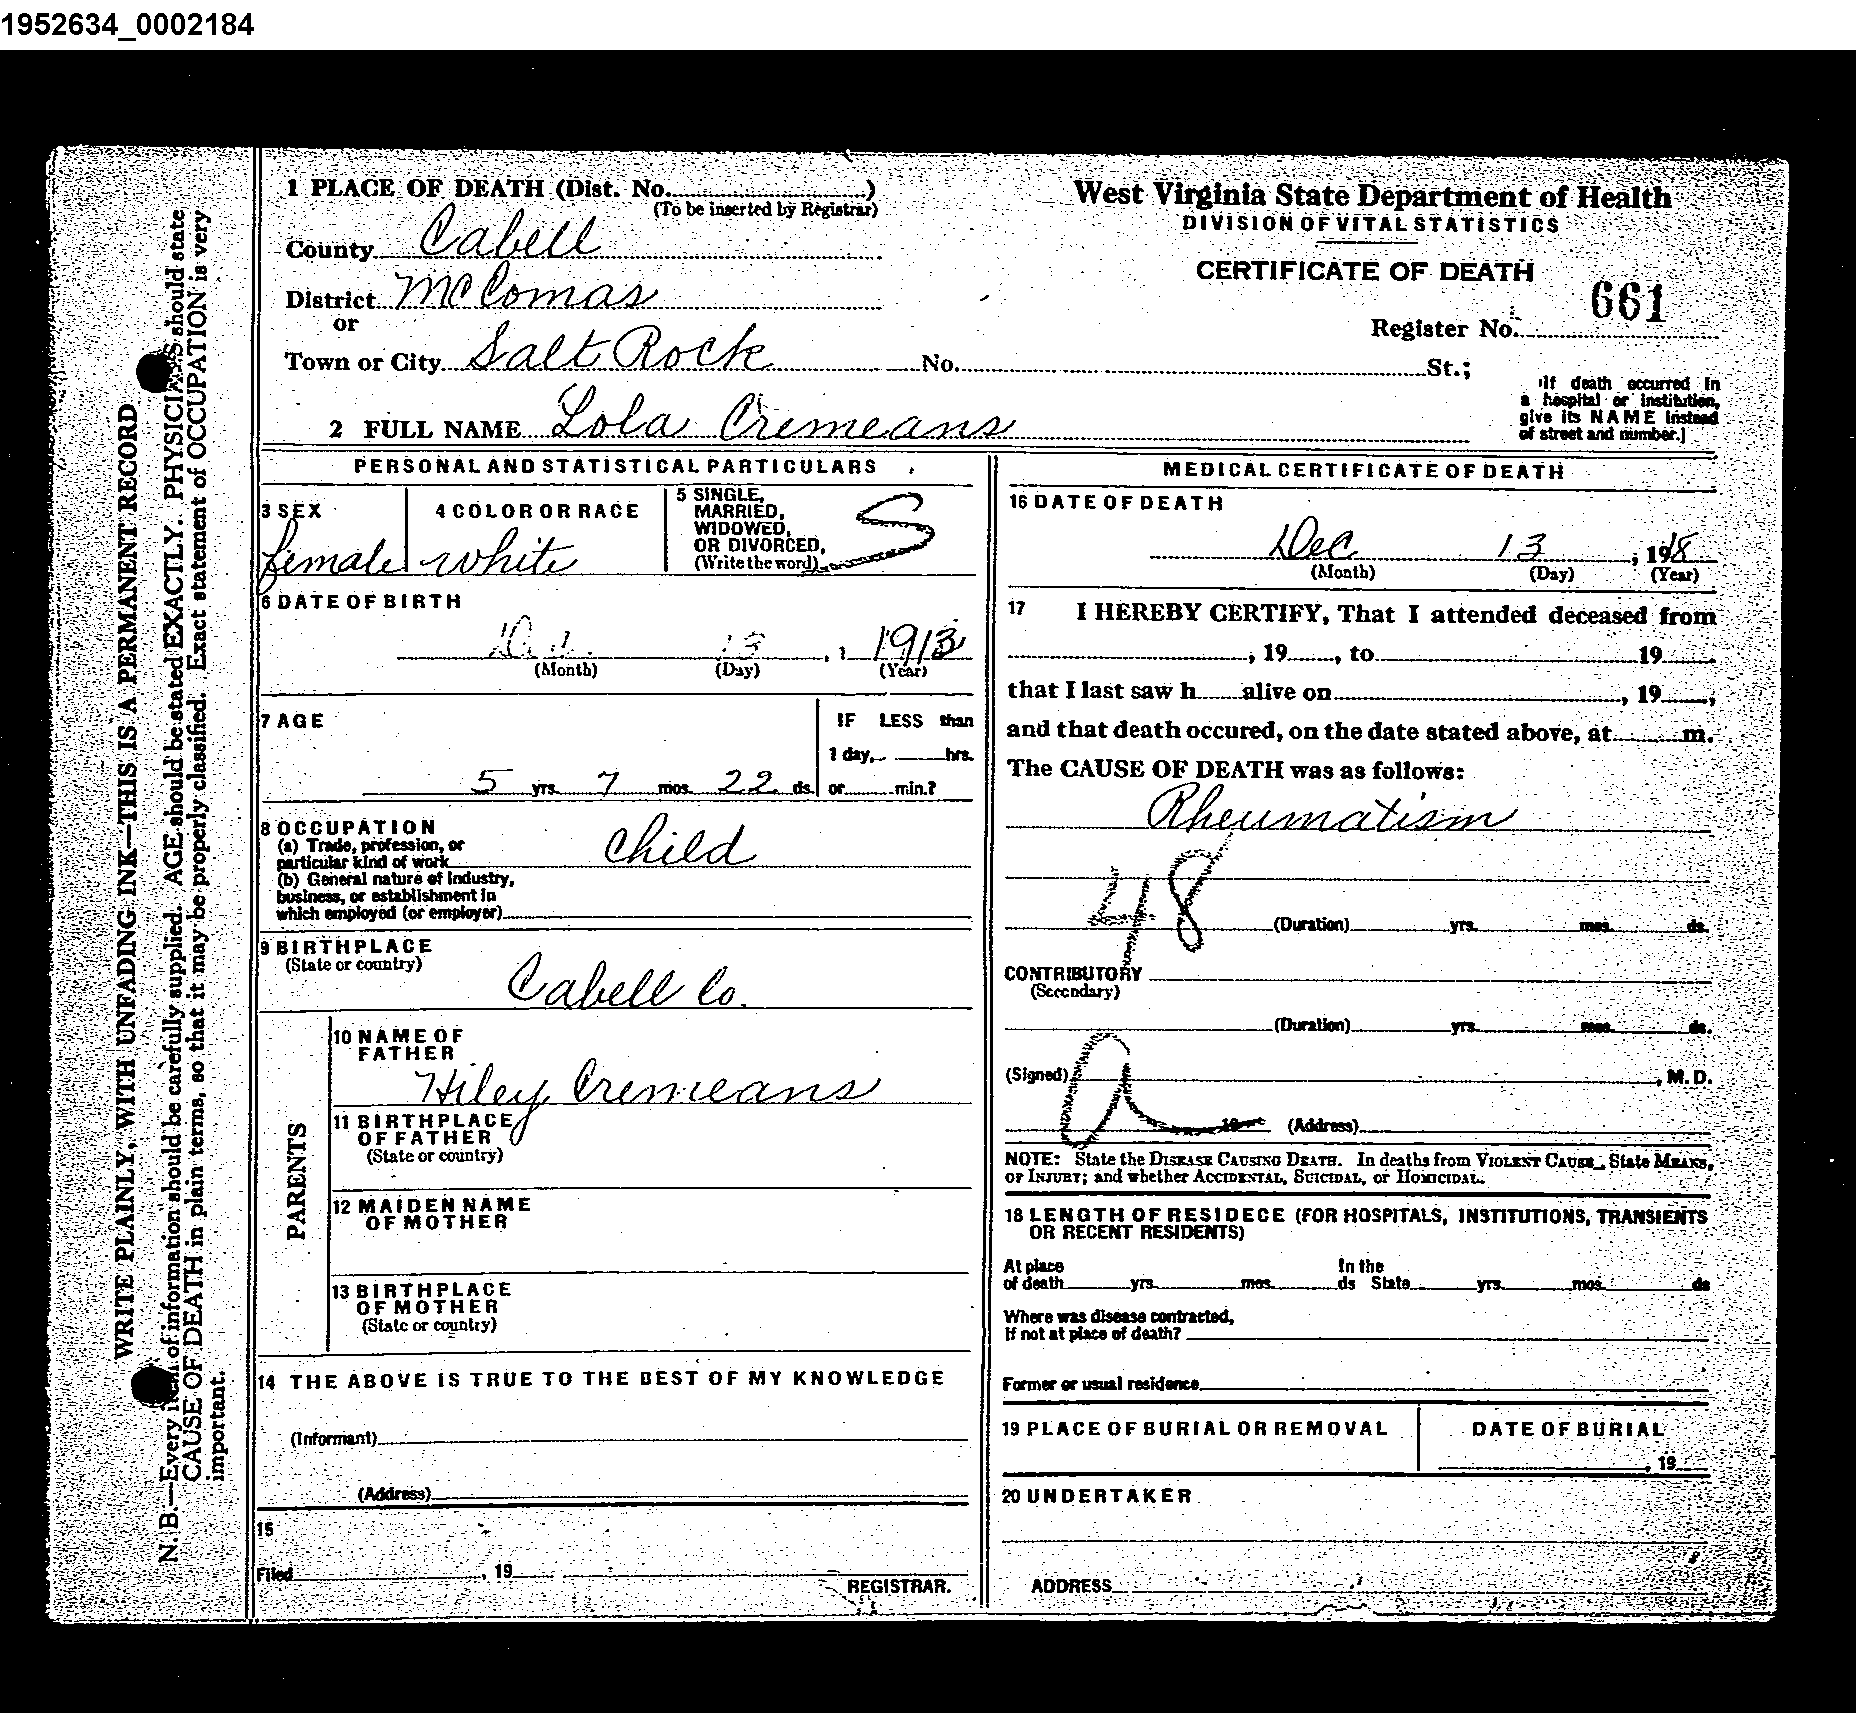 1952634_0002184
1 PLACE OF DEATH (Dist. No. )
(To be inserted by Registrar)
County Cabell
District McComas
or
Town or City Salt Rock No. St.;
2 FULL NAME Lola Cremeans
West Virginia State Department of Health
DIVISION OF VITAL STATISTICS
CERTIFICATE OF DEATH
661
Register No.
If death occurred in
a hospital or institution,
give its NAME instead
of street and number.]
PERSONAL AND STATISTICAL PARTICULARS
3 SEX
female
4 COLOR OR RACE
white
5 SINGLE,
MARRIED,
WIDOWED,
OR DIVORCED,
(Write the word)
S
6 DATE OF BIRTH
13 , 1 1913
(Month) (Day) (Year)
7 AGE
5 yrs. 7 mos. 22 ds.
IF LESS than
1 day, hrs.
or min.?
8 OCCUPATION
(a) Trade, profession, or
particular kind of work
child
(b) General nature of industry,
business, or establishment in
which employed (or employer)
9 BIRTHPLACE
(State or country)
Cabell Co.
PARENTS
10 NAME OF
FATHER
Hiley Cremeans
11 BIRTHPLACE
OF FATHER
(State or country)
12 MAIDEN NAME
OF MOTHER
13 BIRTHPLACE
OF MOTHER
(State or country)
14 THE ABOVE IS TRUE TO THE BEST OF MY KNOWLEDGE
(Informant)
(Address)
15
Filed , 19
REGISTRAR.
MEDICAL CERTIFICATE OF DEATH
16 DATE OF DEATH
Dec 13 , 1918
(Month) (Day) (Year)
17 I HEREBY CERTIFY, That I attended deceased from
, 19 , to 19
that I last saw h alive on , 19 ,
and that death occured, on the date stated above, at m.
The CAUSE OF DEATH was as follows:
Rheumatism
48
(Duration) yrs. mos. ds.
CONTRIBUTORY
(Secondary)
(Duration) yrs. mos. ds.
(Signed) , M.D.
19 (Address)
NOTE: State the DISEASE CAUSING DEATH. In deaths from VIOLENT CAUSE, State MEANS,
OF INJURY; and whether ACCIDENTAL, SUICIDAL, or HOMICIDAL.
18 LENGTH OF RESIDECE (FOR HOSPITALS, INSTITUTIONS, TRANSIENTS
OR RECENT RESIDENTS)
At place In the
of death yrs. mos. ds State yrs. mos. ds
Where was disease contracted,
if not at place of death?
Former or usual residence
19 PLACE OF BURIAL OR REMOVAL
DATE OF BURIAL
, 19
20 UNDERTAKER
ADDRESS
WRITE PLAINLY, WITH UNFADING INK—THIS IS A PERMANENT RECORD
N. B.—Every item of information should be carefully supplied. AGE should be stated EXACTLY. PHYSICIANS should state
CAUSE OF DEATH in plain terms, so that it may be properly classified. Exact statement of OCCUPATION is very
important.